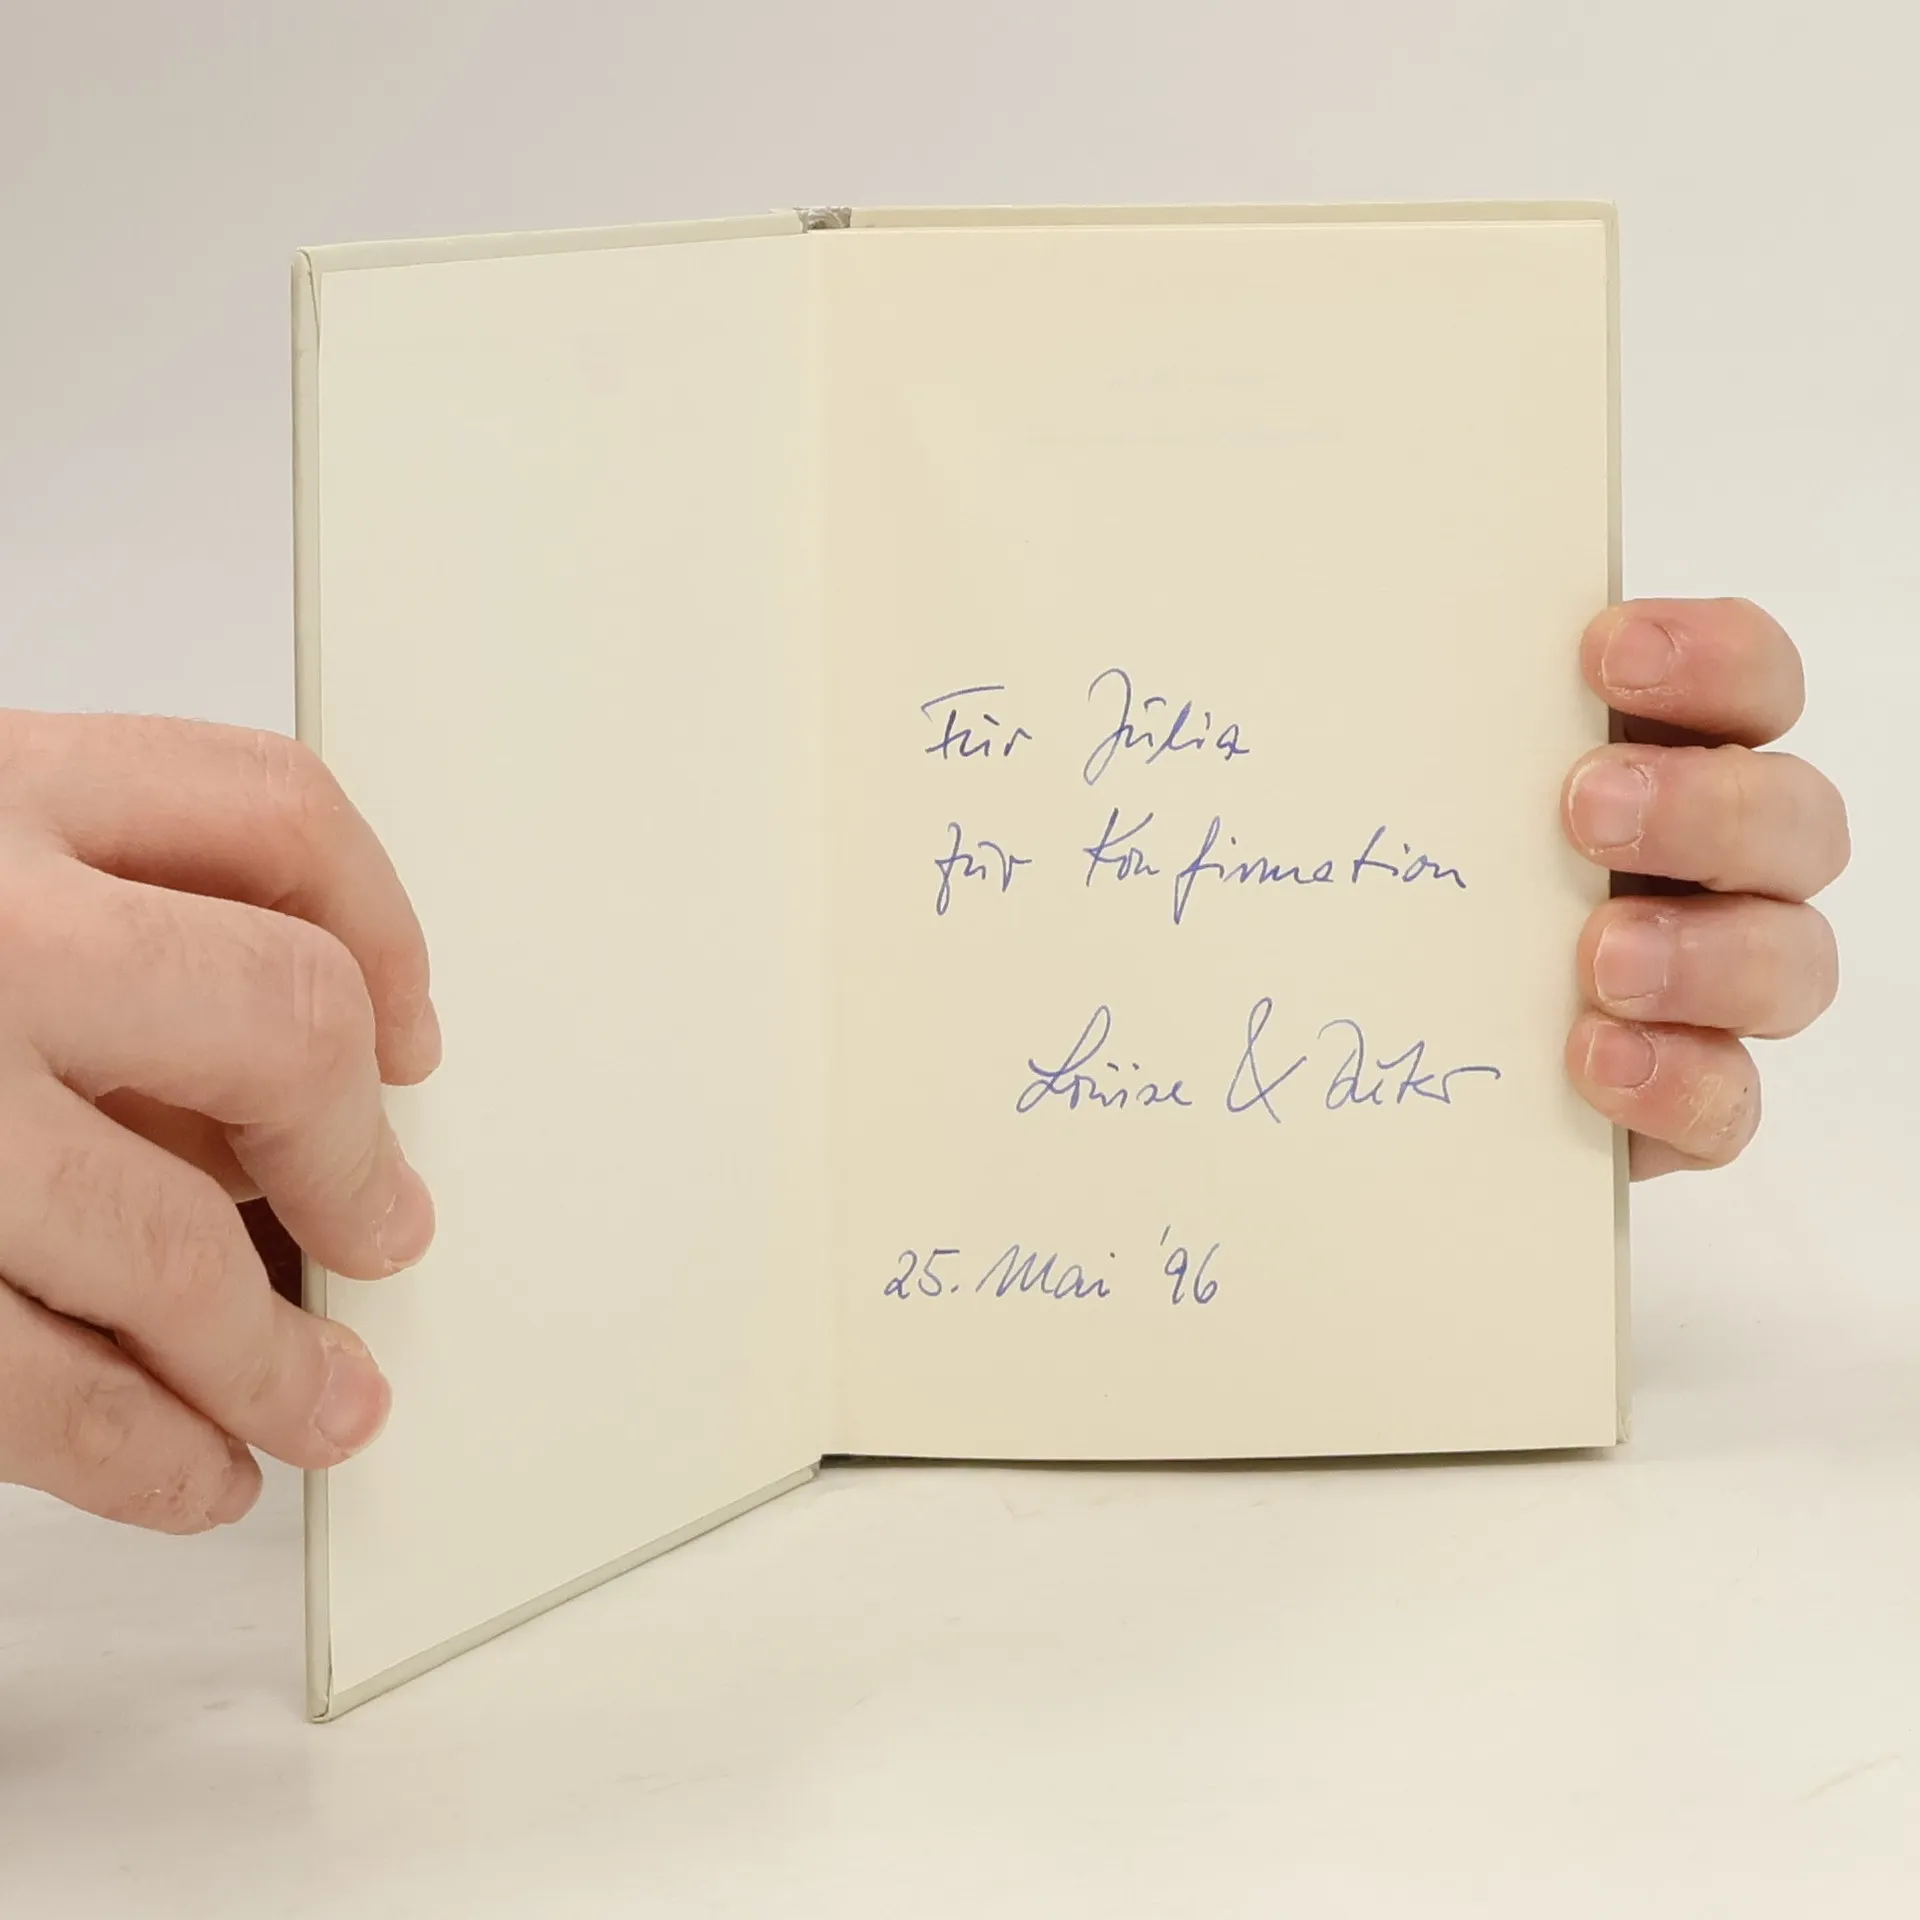 Für Julia
zur Konfirmation
Louise & Dieter
25. Mai '96